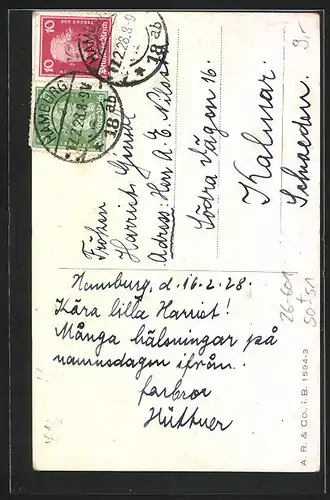 10
DER GROSSE
HAMBURG
.2.28.8-9
* 18 ab
HAMBURG
.2.28.8-9
* 18 ab
9.-
Fröken
Harriet
Adress: Herr A. E. Nilsson
Södra Vägen 16.
Kalmar.
Schweden.
Hamburg, d. 16.2.28.
Kära lilla Harriet!
Många hälsningar på
namnsdagen ifrån
farbror
Hüttner
A. R. & CO., i. B. 1594-3